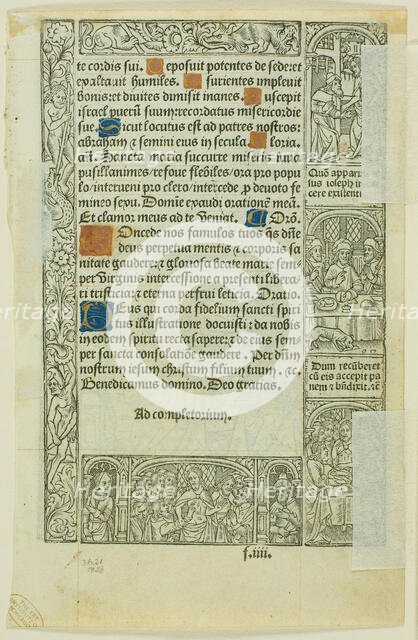 te cordis sui. eposuit potentes de sede: et
exaltauit humiles. surientes impleuit
bonis: et diuites dimisit inanes. uscepit
israel puerū suum: recordatus misericordie
sue. Sicut locutus est ad patres nostros:
abraham & semini eius in secula. loria.
Sancta maria succurre miseris iuua
pusillanimes / refoue flebiles / ora pro popu
lo / interueni pro clero / intercede p deuoto fe
mineo sexu. Domine exaudi orationē meā.
Et clamor meus ad te veniat. Orō.
Oncede nos famulos tuos qs dn̄e
deus perpetua mentis & corporis sa
nitate gaudere: & gloriosa beate marie sem
per virginis intercessione a presenti libera
ri tristicia: & eterna perfrui leticia. Oratio.
Eus qui corda fidelium sancti spiri
tus illustratione docuisti: da nobis
in eodem spiritu recta sapere: & de eius sem
per sancta consolatiōe gaudere. Per dn̄m
nostrum iesum christum filium tuum. &c.
Benedicamus domino. Deo gratias.
Ad completorium.
Quō appar
sus ioseph in
cere existenti
Dum recūberet
cū eis accepit pa
nem & bn̄dixit. &c
f.iiii.
Heritage
heritage-images.com